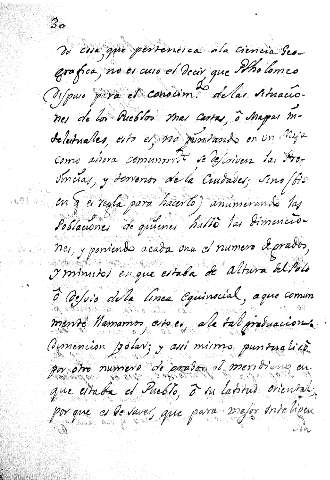 30
de cosa que pertenesca a la ciencia Geo-
grafica, no es cuso el decir, que Ptholomeo
dispuso para el conocim.to de las situacio-
nes de los Pueblos unas Cartas, ò Mapas in-
telectuales, esto es, no puntando en un
como ahora comunm.te se las Pro-
vincias, y terrenos de la Ciudades; sino
en q.e es regla para hacerlo) anumerando las
Poblacions de quienes hallò las dimencio-
nes, y poniendo a cada una el numero de grados,
y minutos en que estaba de Altura del Polo
ò desvio de la linea Equinocial, a que comun
mente llamamos, esto es, a la tal graduacion
Dimencion Polar; y asi mismo
por otro numero de grados el meridiano en
que estaba el Pueblo, ò su latitud oriental,
por que es de saver, que para mejor inteligen
cia